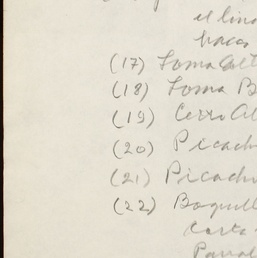 el lin
hacen
(17) Loma alt
(18) Loma B
(19) Cerro al
(20) Picach
(21) Picach
(22) Boquill
Corta
Parral